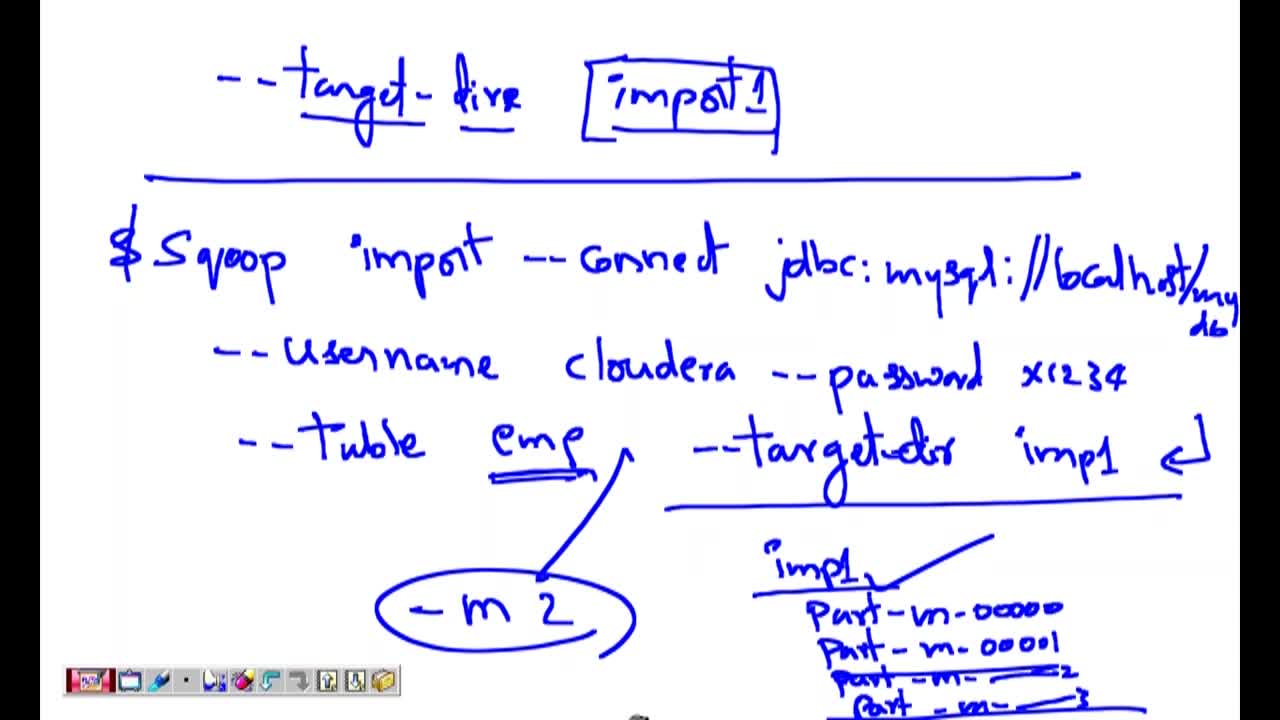 --target-dire import1
$ Sqoop import --connect jdbc:mysql://localhost/my
db
--username cloudera --password x1234
--Table emp --target-dir imp1
-m 2
imp1
part-m-00000
part-m-00001
part-m- 2
part-m- 3